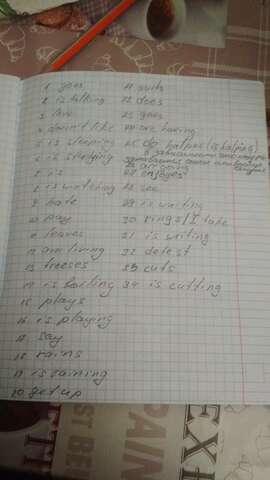 1 goes
2 is talking
3 love
4 doesn't like
5 is sleeping
6 is studying
7 is
8 is watching
9 hate
10 pay
11 leaves
12 are living
13 freeses
14 is boiling
15 plays
16 is playing
17 say
18 rains
19 is raining
20 get up
21 quits
22 does
23 goes
24 are having
25 do helpes (is helpes)
27 enjoyes
28 see
29 is waiting
30 rings/I take
31 is writing
32 detest
33 cuts
34 is cutting
BEST
PAIN
TEX